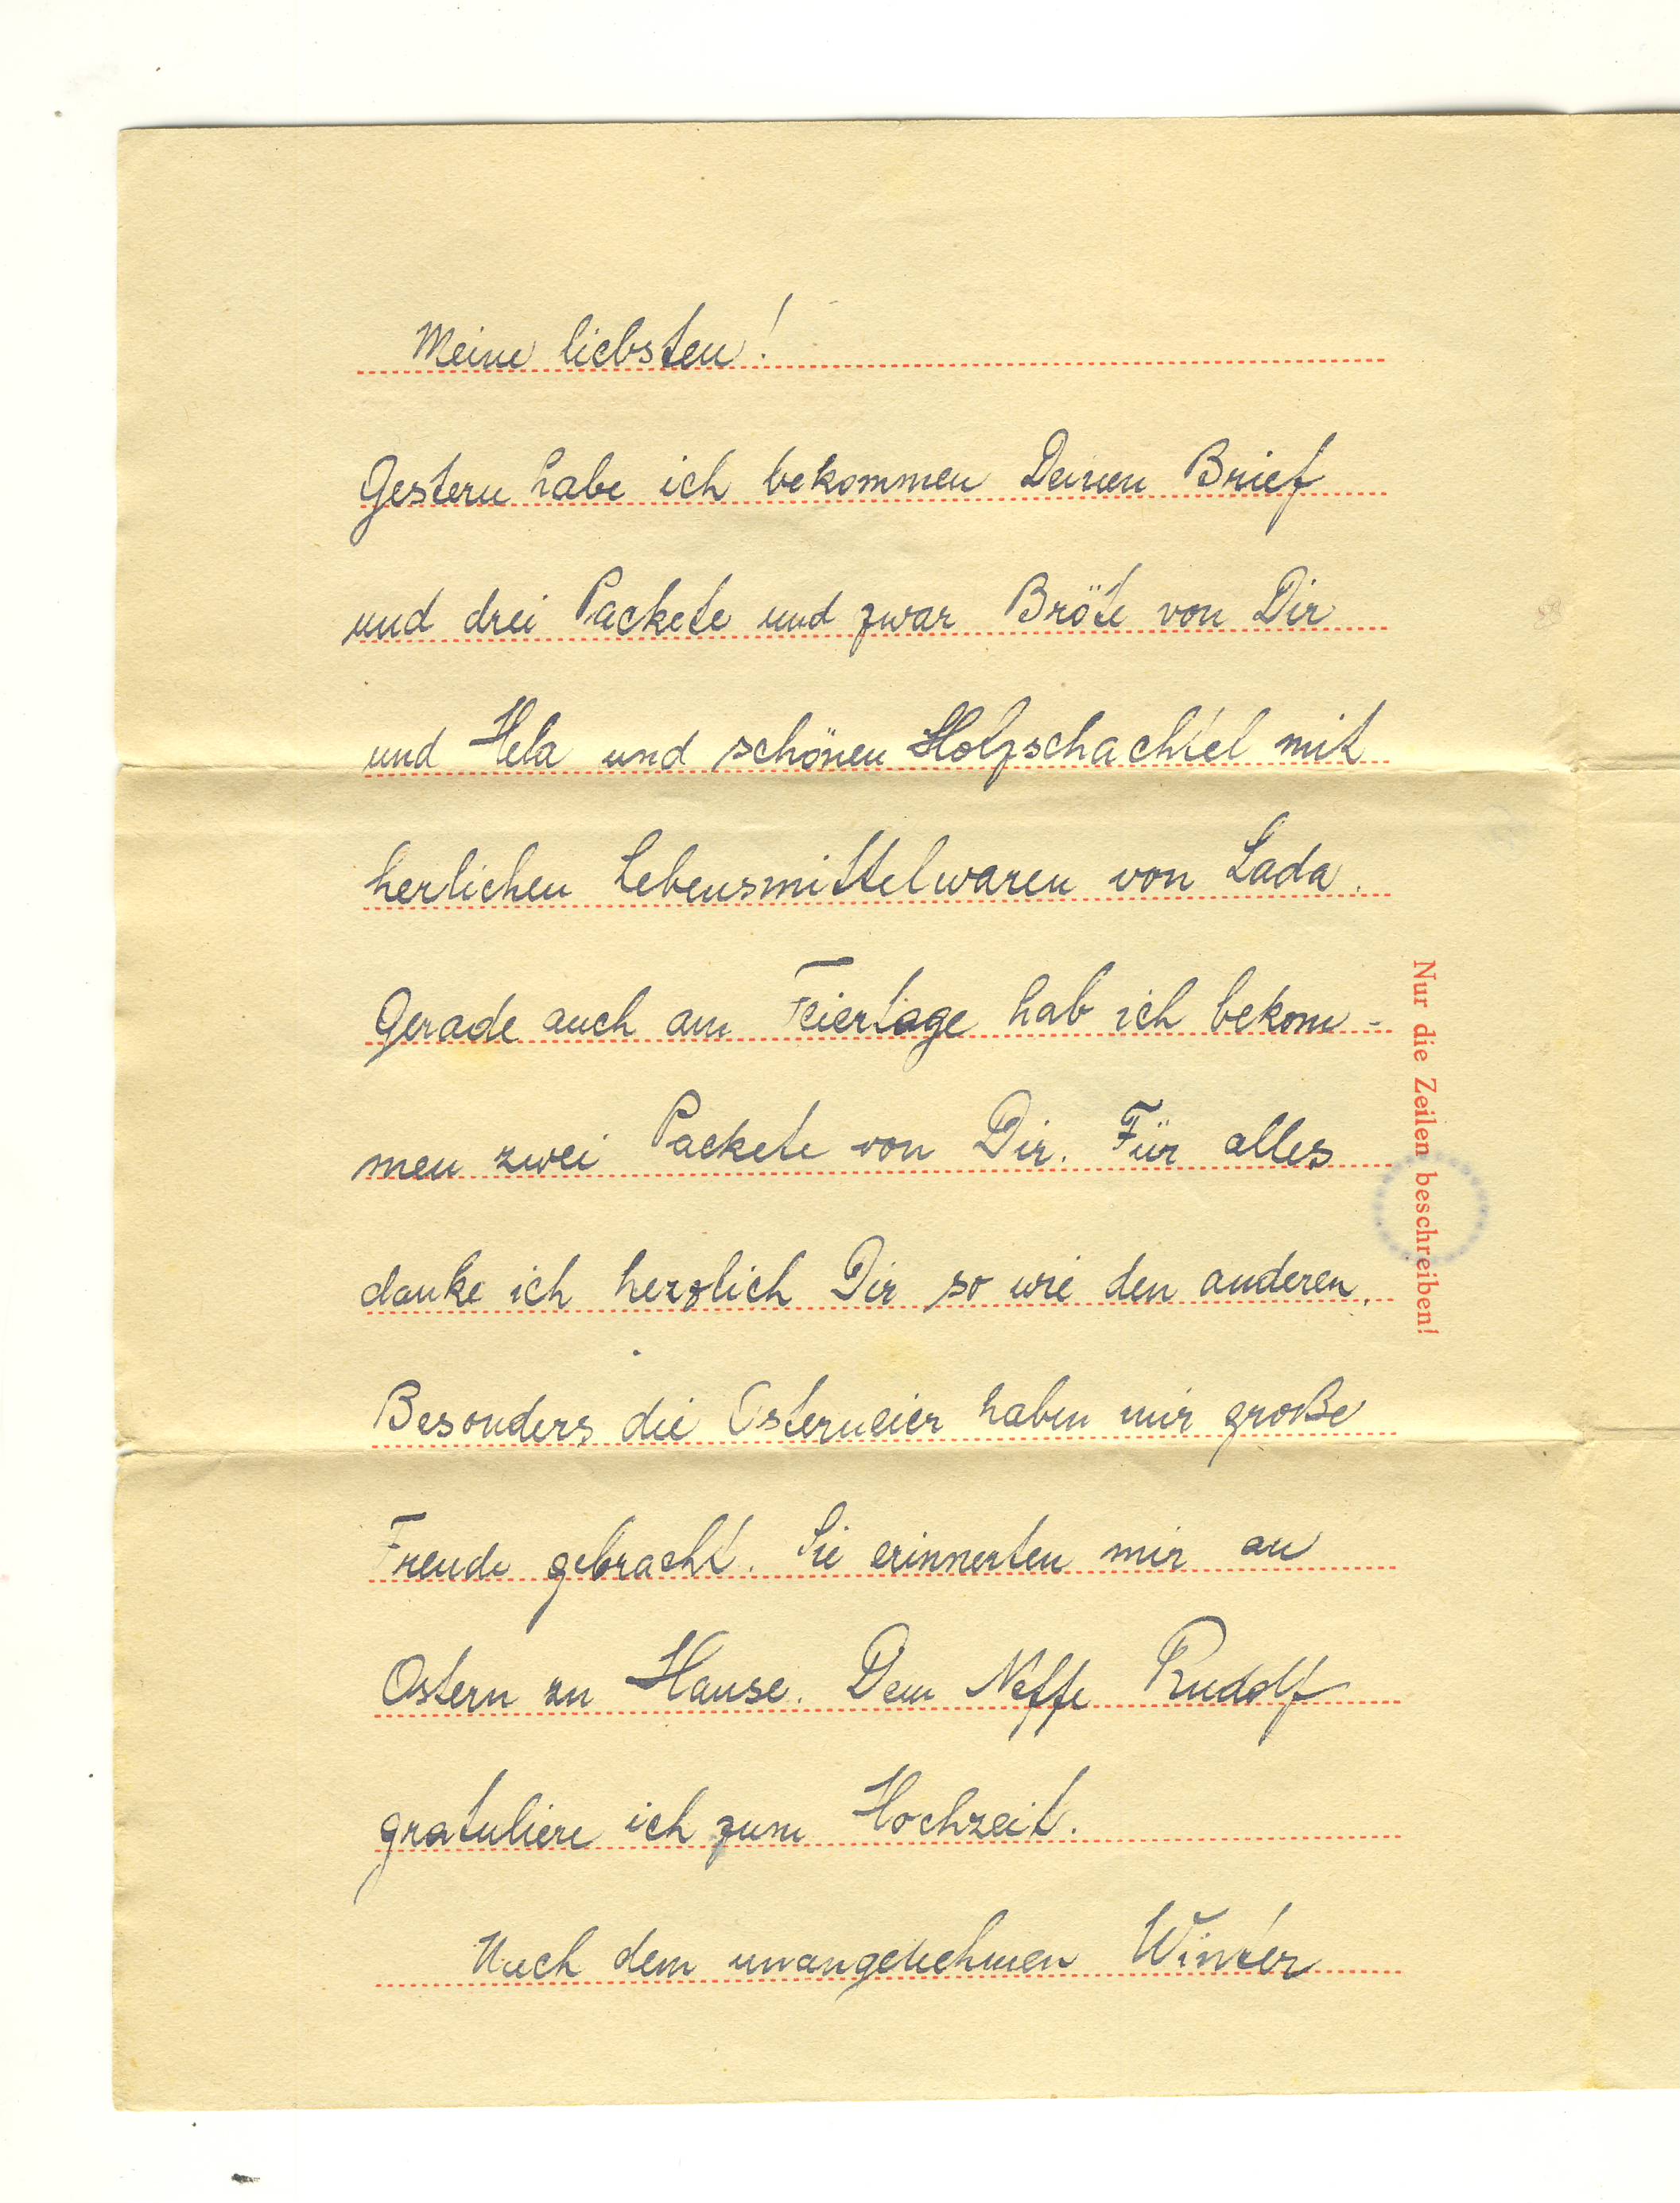 Meine liebsten!
Gestern habe ich bekommen Deinen Brief
und drei Packete und zwar Bröte von Dir
und Hela und schönen Holzschachtel mit
herlichen Lebensmittelwaren von Lada.
Gerade auch am Feiertage hab ich bekom-
men zwei Packete von Dir. Für alles
danke ich herzlich Dir so wie den anderen.
Besonders die Osterneier haben mir große
Freude gebracht. Sie erinnerten mir an
Ostern zu Hause. Dem Neffe Rudolf
gratuliere ich zum Hochzeit.
Nach dem unangenehmen Winter
Nur die Zeilen beschreiben!